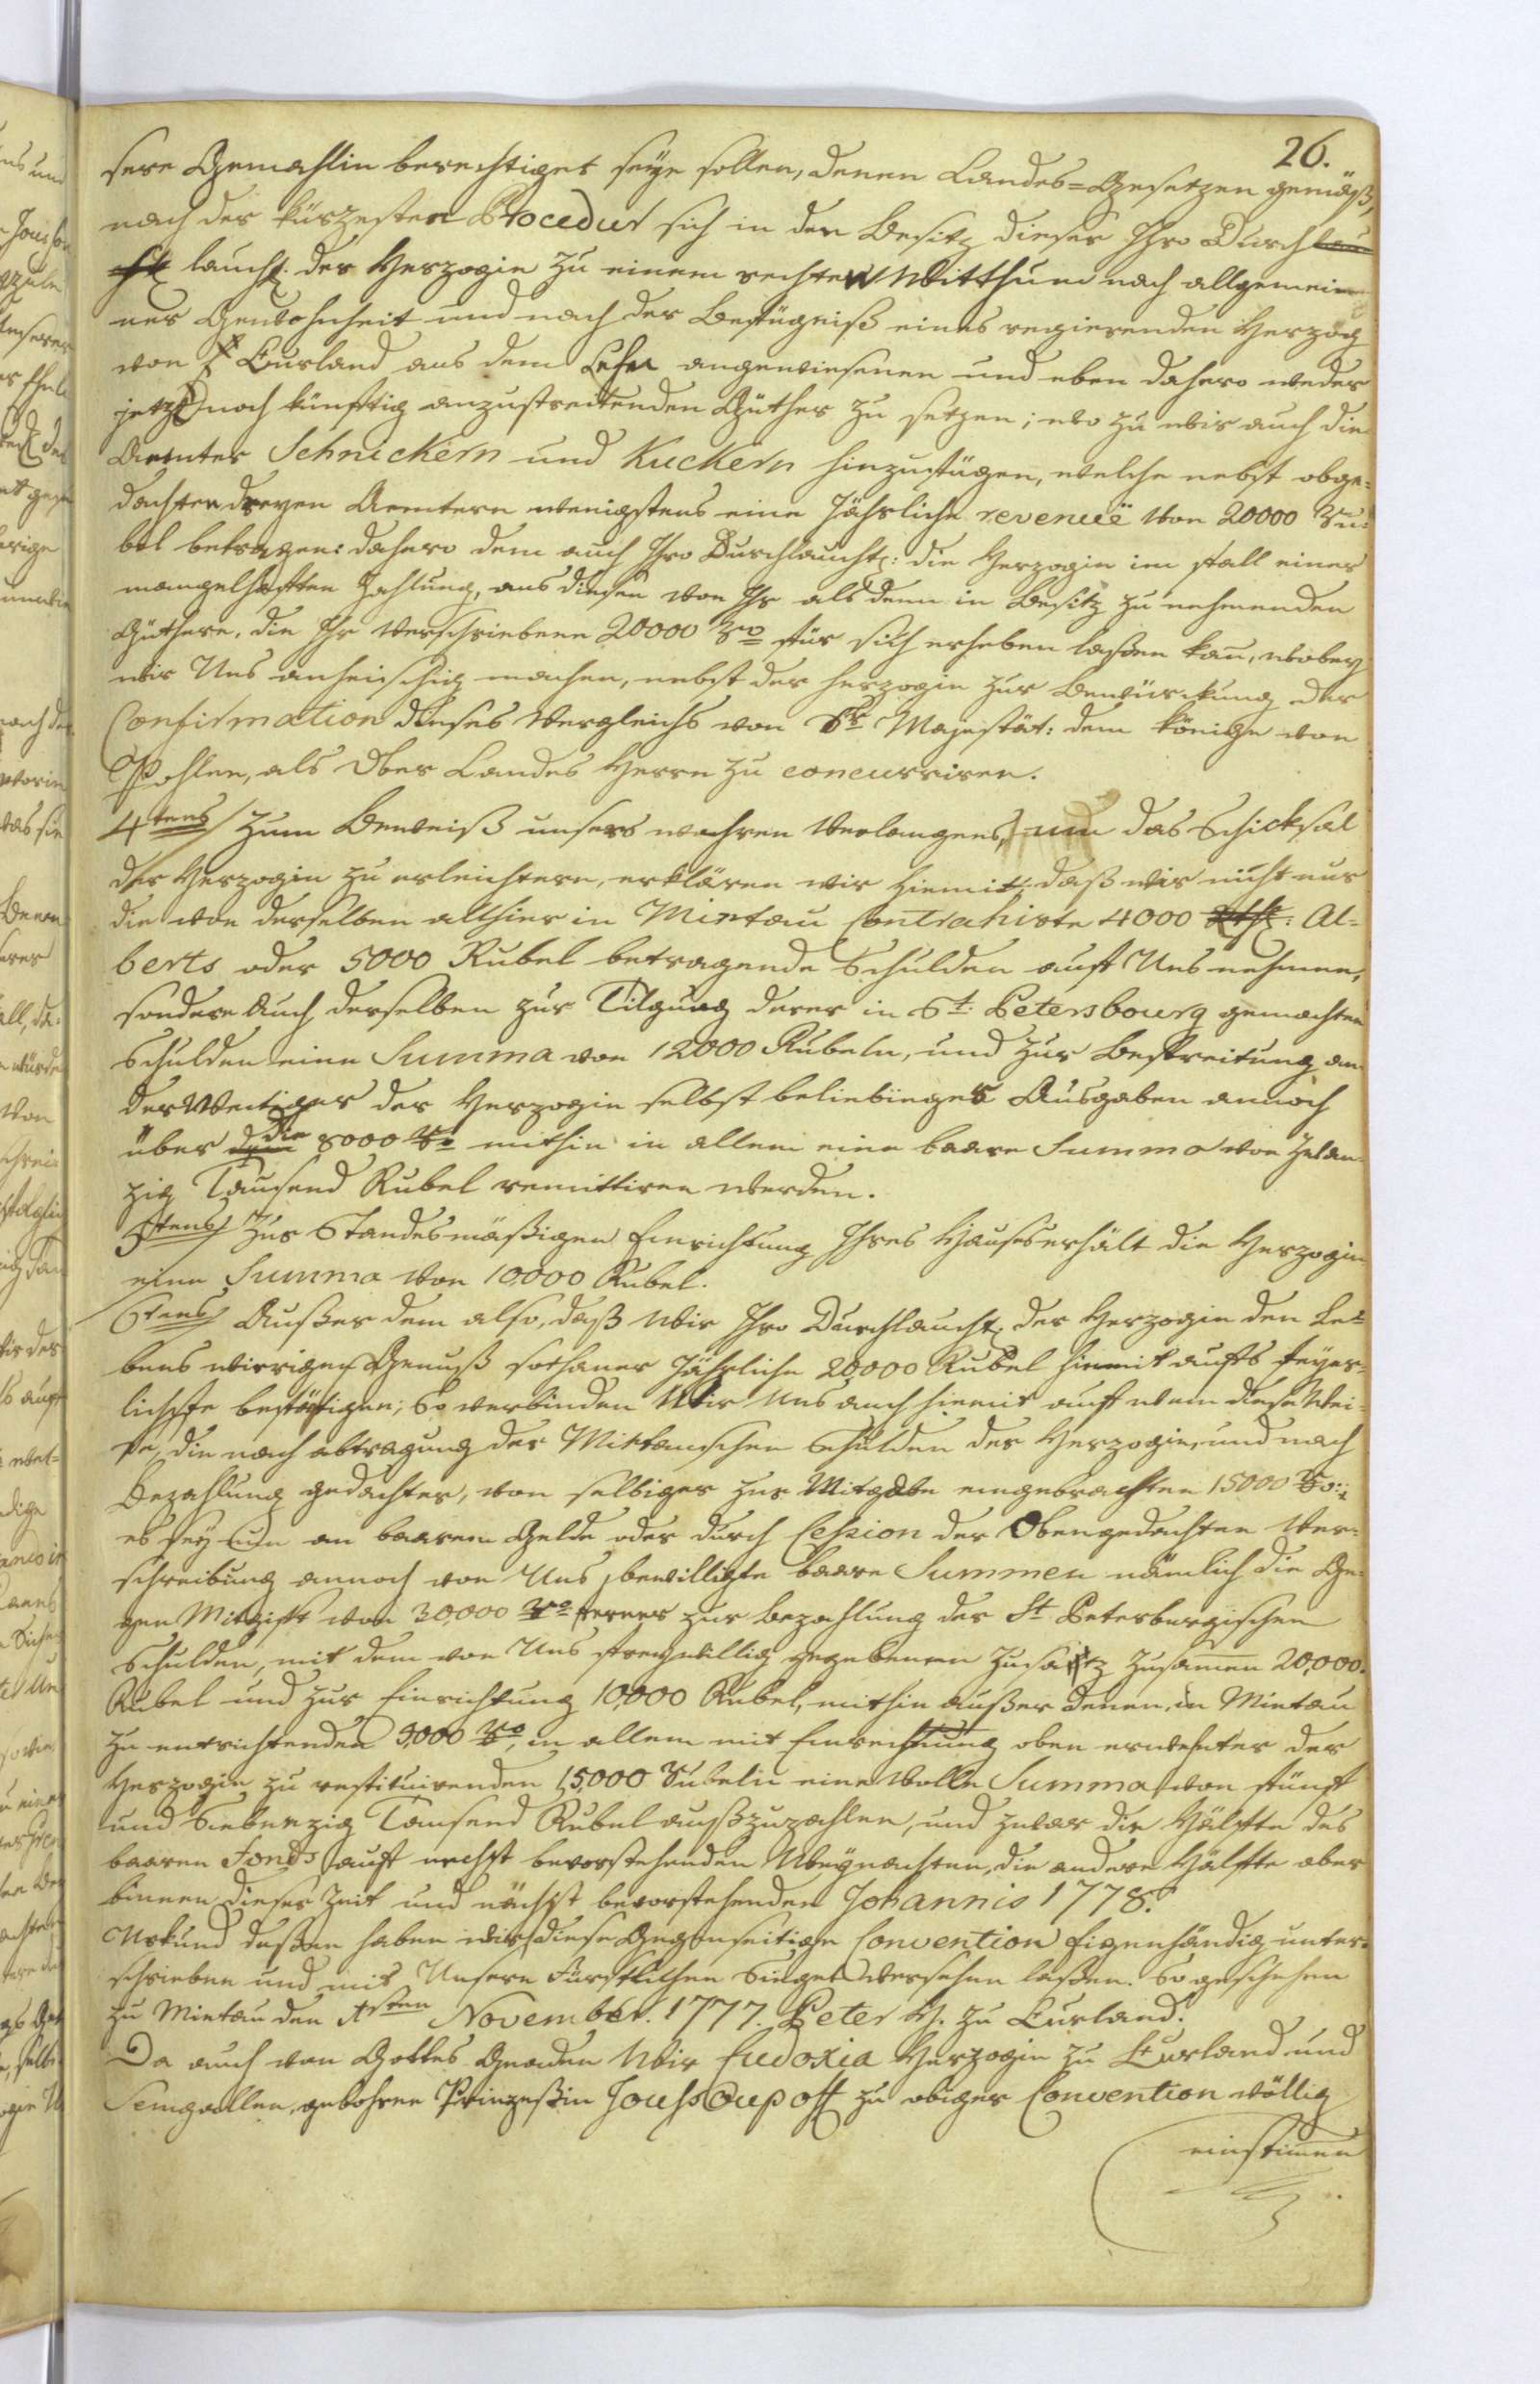 26.
sere Gemahlin berechtiget seyn sollen, denen Landes-Gesetzen gemäß,
nach der kürzesten Procedur sich in den Besitz dieser Ihro Durchlau
laucht. der Herzogin zu einem rechten Witthum nach allgemei-
ner Gewohnheit und nach der Befügniß eines regierenden Herzog
von Curland aus dem Lehn angewiesenen und eben dahero weder
jetzt noch künfftig anzustreitenden Güther zu setzen; wo zu wir auch die
Aemter Schnickern und Kuckern hinzufügen, welche nebst obge-
dachten dreyen Aemtern wenigstens eine Jährliche revenuë von 20000 Ru-
bel betragen: dahero denn auch Ihro Durchlaucht: die Herzogin im fall einer
mangelhafften Zahlung, aus diesen von Ihr alsdenn in Besitz zu nehmenden
Güthern, die Ihr verschriebene 20000 Ro für sich erheben laßen kan, wobey
wir Uns anheischig machen, nebst der Herzogin zur Bewürckung der
Confirmation dieses Vergleichs von Sr Majestät: dem Könige von
Pohlen, als Ober Landes Herrn zu concurriren.
4tens Zum Beweiß unsers wahren Verlangens, um das Schicksal
der Herzogin zu erleichtern, erklären wir hiemit, daß wir nicht nur
die von derselben allhier in Mietau Contrahirte 4000 Rthl: Al-
berts oder 5000 Rubel betragende Schulden auff Uns nehmen,
sondern auch derselben zur Tilgung derer in St. Petersbourg gemachten
Schulden eine Summa von 12000 Rubeln, und zur Bestreitung an-
derweitiger der Herzogin selbst beliebiger Ausgaben annoch
über die 8000 Ro mithin in allem eine baare Summa von Zwan-
zig Tausend Rubel remittiren werden.
5tens Zur Standesmäßigen Einrichtung Ihres Hauses erhält die Herzogin
eine Summa von 10000 Rubel.
6tens Außer dem also, daß Wir Ihro Durchlaucht. der Herzogin den Le-
bens wierigen Genuß sothaner Jährliche 20,000 Rubel hiemit auffs feyer-
lichste bestätigen; So verbinden Wir uns auch hiemit auff diese Wei-
se, die nach abtragung der Mittauschen Schulden der Herzogin, und nach
Bezahlung gedachter, von selbiger zur Mitgabe eingebrachten 15000 Ro:,
es sey nun an baarem Gelde oder durch Cession der Obengedachten Ver-
schreibung annoch von Uns bewilligte baare Summen nämlich die Ge-
gen Mitgifft von 30,000 Ro ferner zur Bezahlung der St Petersburgischen
Schulden, mit dem von Uns freywillig gegebenen Zusatz zusamen 20,000.
Rubel und zur Einrichtung 10,000 Rubel, mithin außer denen, in Mietau
zu entrichtenden 5,000 Ro, in allem mit Einrechnung oben erwehnter der
Herzogin zu restituirenden 15,000 Rubeln eine Volle Summa von fünff
und Siebenzig Tausend Rubel außzuzahlen, und zwar die Hälffte des
baaren Fonds auff nechst bevorstehenden Weynachten, die andere Hälffte aber
binnen dieser Zeit und nächst bevorstehenden Johannis 1778.
Urkund deßen haben wir diese Gegenseitige Convention Eigenhändig unter-
schrieben und mit Unsern Fürstlichen Siegel versehen laßen. So geschehen
zu Mietau den sten November. 1777. Peter H. zu Curland.
Da auch von Gottes Gnaden Wir Eudoxia Herzogin zu Curland und
Semgallen, gebohrne Prinzeßin Joussoupoff zu obiger Convention völlig
einstimen